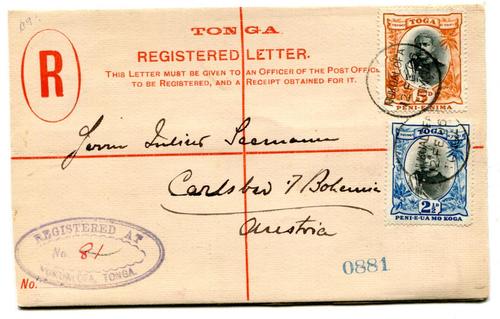 TONGA
REGISTERED LETTER.
THIS LETTER MUST BE GIVEN TO AN OFFICER OF THE POST OFFICE
TO BE REGISTERED, AND A RECEIPT OBTAINED FOR IT.
R
TOGA
5D
PENI-E-NIMA
NUKUALOFA
TOGA
2½D
PENI-E-UA MO KOGA
Herrn Julius Seemann
Carlsbad / Bohemia
Austria
REGISTERED AT
No. 84
NUKUALOFA, TONGA.
No.
0881